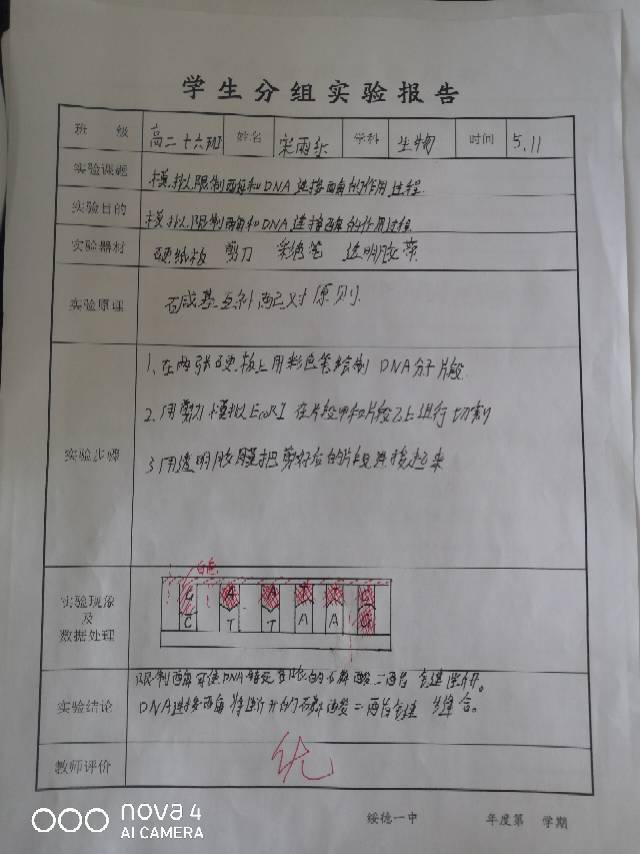 学生分组实验报告
班 级 高二十六班 姓名 宋雨 学科 生物 时间 5.11
实验课题 模拟限制酶和DNA连接酶的作用过程
实验目的 模拟限制酶和DNA连接酶的作用过程
实验器材 硬纸板 剪刀 彩色笔 透明胶带
实验原理 碱基互补配对原则
1、在两张硬板上用彩色笔绘制DNA分子片段
2.用剪刀模拟EcoRI在片段甲和片段乙上进行切割
实验步骤
3用透明胶把剪好后的片段连接起来
实验现象
及
数据处理
G A A T T C
C T T A A G
限制酶可使DNA链 的磷酸二酯键断开。
实验结论
DNA连接酶将断开的磷酸二酯键缝合。
教师评价 优
绥德一中 年度第 学期
nova 4
AI CAMERA